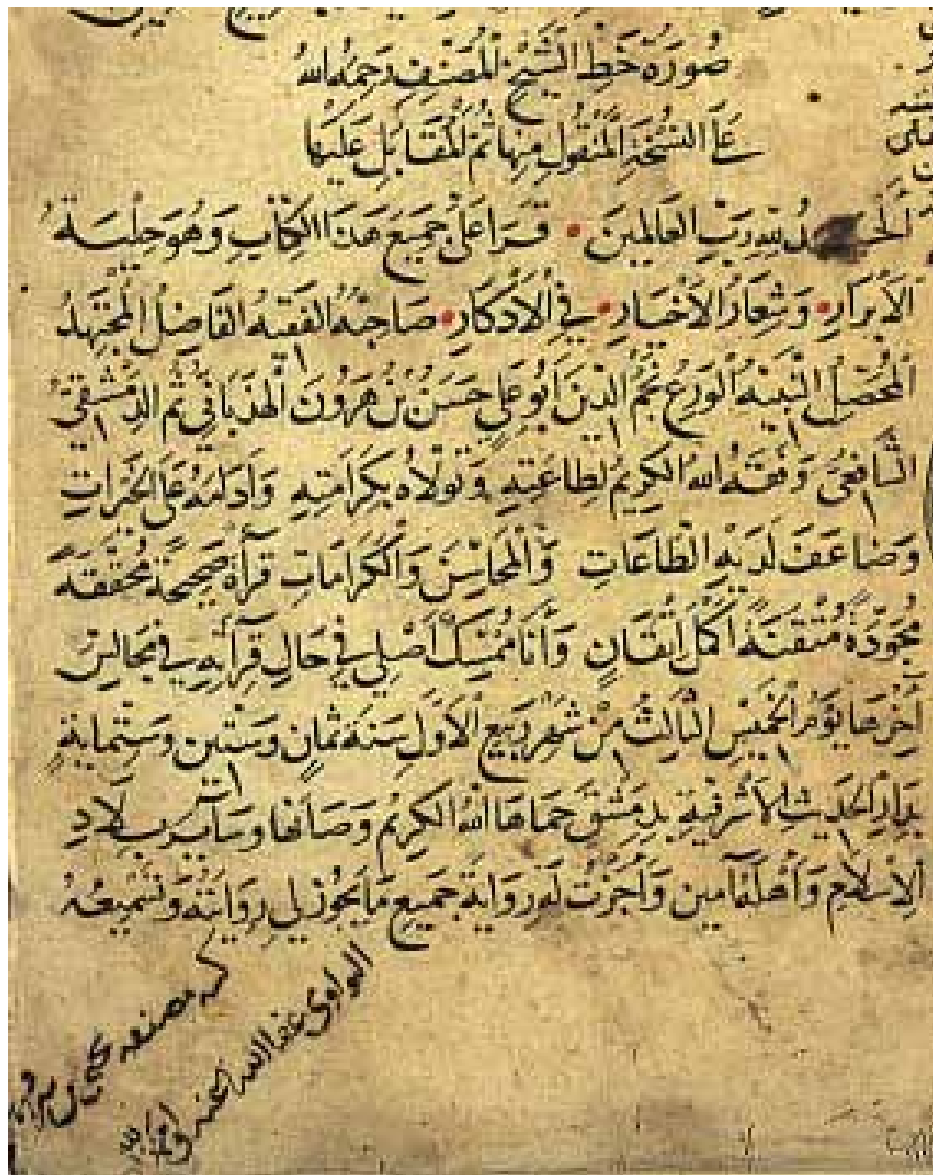 صُورَةُ خَطِّ الشَّيْخِ الْمُصَنِّفِ رَحِمَهُ اللهُ
عَلَى النُّسْخَةِ الْمَنْقُولِ مِنْهَا ثُمَّ الْمُقَابَلِ عَلَيْهَا
اَلْحَمْدُ لِلّهِ رَبِّ الْعَالَمِينَ • قَرَأَ عَلَيَّ جَمِيعَ هَذَا الْكِتَابِ وَهُوَ حِلْيَةُ
الْأَبْرَارِ • وَشِعَارُ الْأَخْيَارِ • فِي الْأَذْكَارِ • صَاحِبُهُ الْفَقِيهُ الْفَاضِلُ الْمُجْتَهِدُ
الْمُحَصِّلُ النَّبِيهُ الْوَرِعُ نَجْمُ الدِّينِ أَبُو عَلِي حَسَنُ بْنُ هَرُونَ الْهَذَبَانِيُّ ثُمَّ الدِّمَشْقِيُّ
الشَّافِعِيُّ وَفَّقَهُ اللهُ الْكَرِيمُ لِطَاعَتِهِ وَتَوَلَّاهُ بِكَرَامَتِهِ وَأَدَامَهُ عَلَى الْخَيْرَاتِ
وَضَاعَفَ لَدَيْهِ الطَّاعَاتِ وَالْمَحَاسِنَ وَالْكَرَامَاتِ قِرَأَةً صَحِيحَةً مُحَقَّقَةً
مُجَوَّدَةً مُتْقَنَةً أَكْمَلَ إِتْقَانٍ وَأَنَا مُمْسِكٌ أَصْلِي فِي حَالِ قِرَأَتِهِ فِي مَجَالِسَ
آخِرُهَا يَوْمُ الْخَمِيسِ الثَّالِثُ مِنْ شَهْرِ رَبِيعِ الْأَوَّلِ سَنَةَ ثَمَانٍ وَسِتِّينَ وَسِتِّمَايَةٍ
بِدَارِ الْحَدِيثِ الْأَشْرَفِيَّةِ بِدِمَشْقَ حَمَاهَا اللهُ الْكَرِيمُ وَصَانَهَا وَسَايِرَ بِلَادِ
الْإِسْلَامِ وَأَهْلَهَا آمِين وَأَجَزْتُ لَهُ رِوَايَةَ جَمِيعِ مَا يَجُوزُ لِي رِوَايَتُهُ وَتَسْمِيعُهُ
كتبه مصنفه يحيى بن شرف
النواوى عفا الله عنه